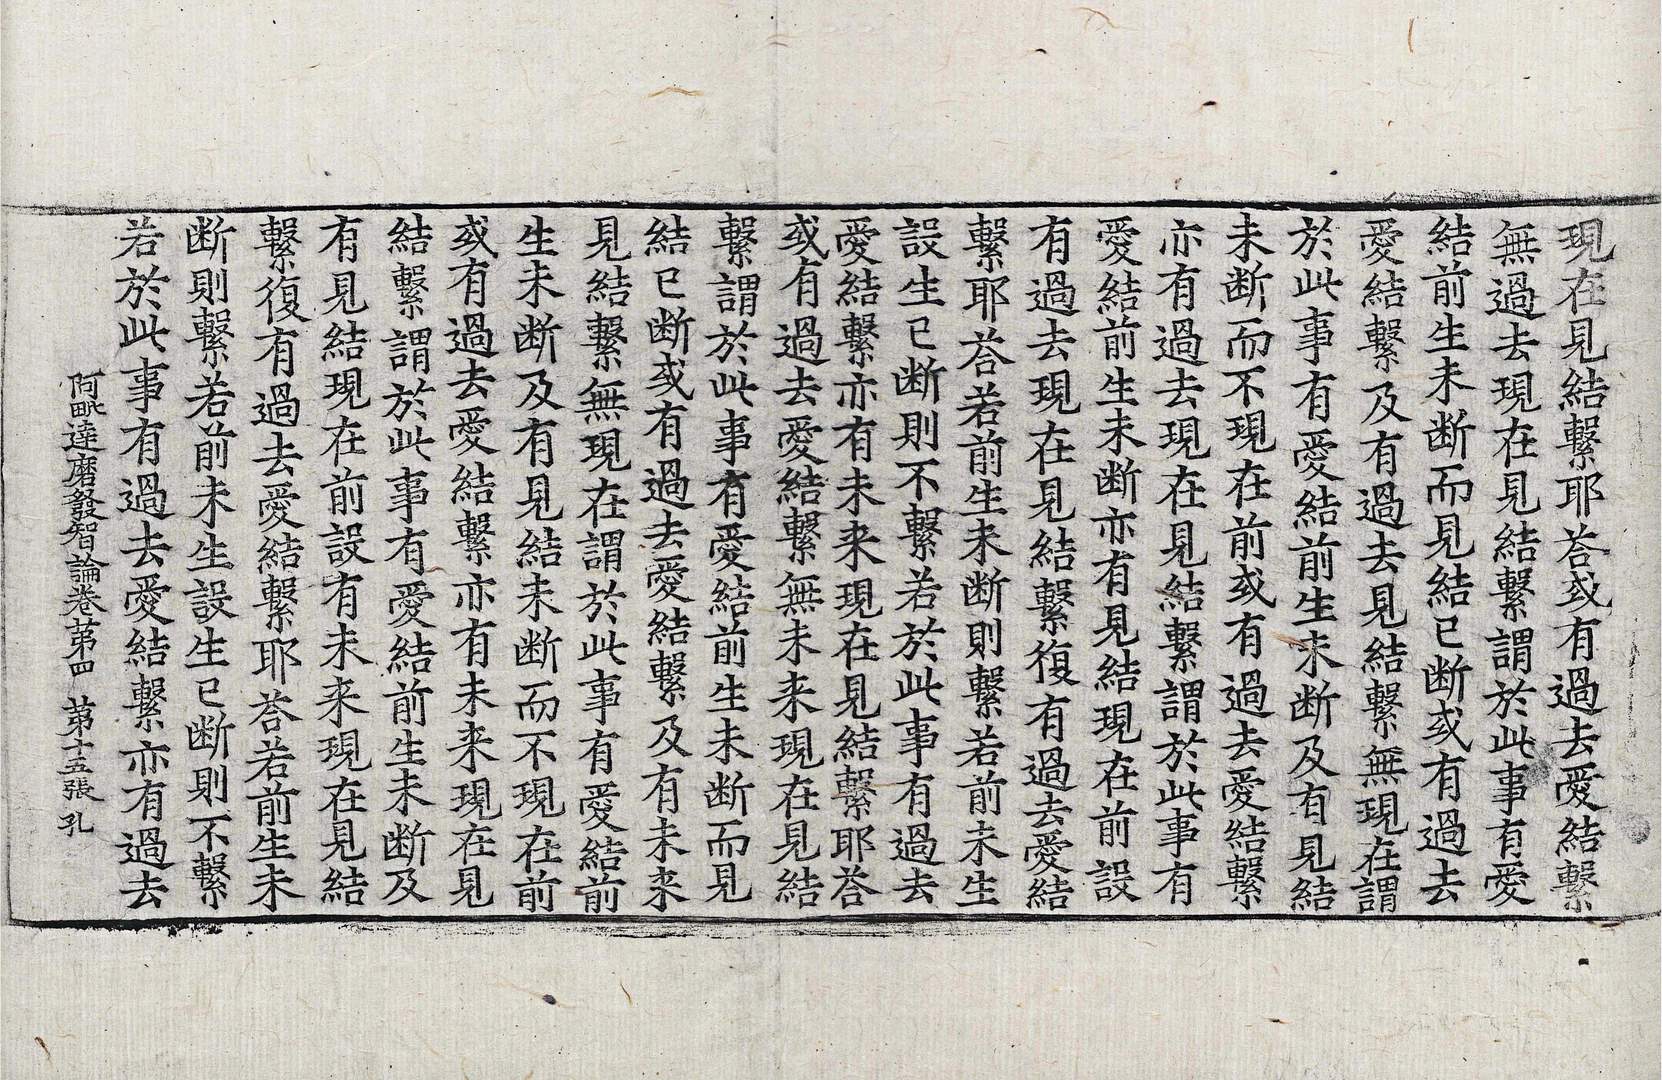 現在見結繫耶荅或有過去愛結繫
無過去現在見結繫謂於此事有愛
結前生未断而見結已断或有過去
愛結繫及有過去見結繫無現在謂
於此事有愛結前生未断及有見結
未断而不現在前或有過去愛結繫
亦有過去現在見結繫謂於此事有
愛結前生未断亦有見結現在前設
有過去現在見結繫復有過去愛結
繫耶荅若前生未断則繫若前未生
設生已断則不繫若於此事有過去
愛結繫亦有未来現在見結繫耶荅
或有過去愛結繫無未来現在見結
繫謂於此事有愛結前生未断而見
結已断或有過去愛結繫及有未来
見結繫無現在謂於此事有愛結前
生未断及有見結未断而不現在前
或有過去愛結繫亦有未来現在見
結繫謂於此事有愛結前生未断及
有見結現在前設有未来現在見結
繫復有過去愛結繫耶荅若前生未
断則繫若前未生設生已断則不繫
若於此事有過去愛結繫亦有過去
阿毗達磨發智論卷第四 第十五張 孔